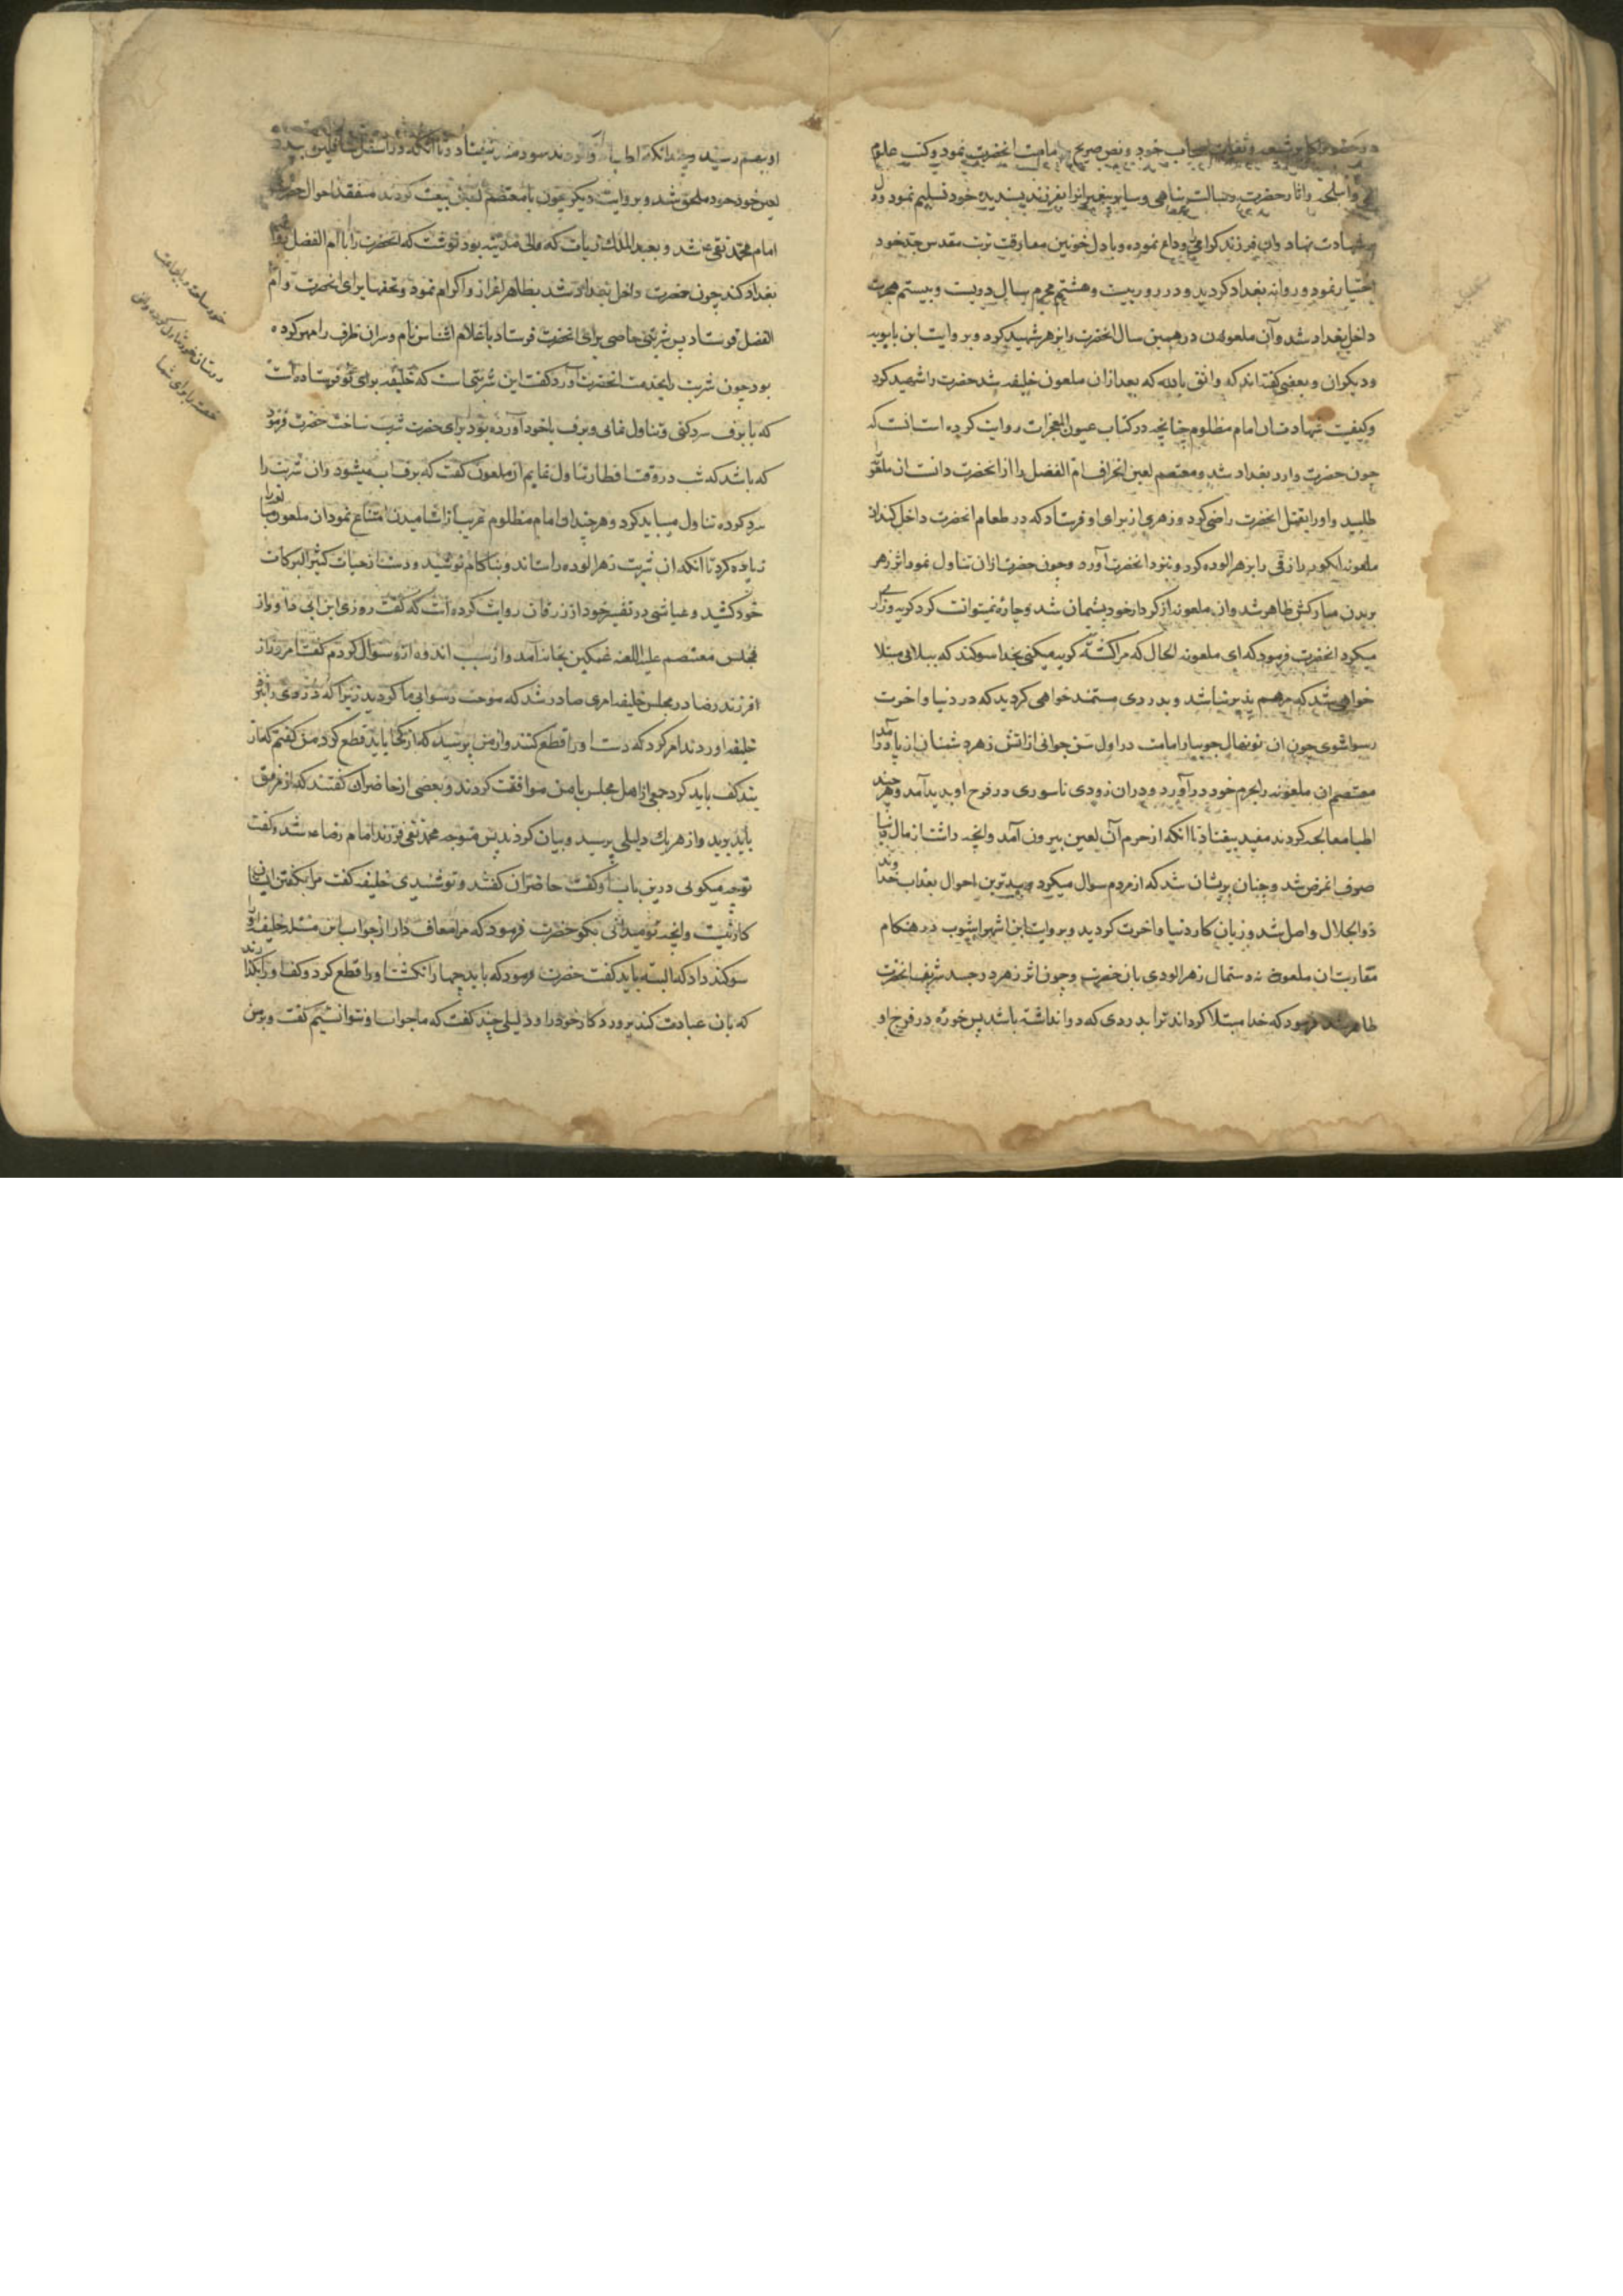 در حضور اکابر شیعه و ثقات اصحاب خود و نص صریح بر امامت انحضرت نمود و کتب علوم
و اسلحه و اثار حضرت رسالت پناهی و سایر پیغمبرانرا بفرزند پسندیده خود تسلیم نمود و دل
بر شهادت نهاد وان فرزند کرامی وداع نموده و با دل خونین مفارقت تربت مقدس جد خود
اختیار نمود و روانه بغداد کردید و در روز بیست و هشتم محرم سال دویست و بیستم هجرت
داخل بغداد شد و آن ملعون در همین سال انحضرت را بزهر شهید کرد و بروایت ابن بابویه
و دیکران و بعضی کفته اند که واثق بالله که بعد ازان ملعون خلیفه شد حضرت را شهید کرد
و کیفیت شهادت ان امام مظلوم چنانچه در کتاب عیون المعجزات روایت کرده است انست که
چون حضرت وارد بغداد شد و معتصم لعین انحراف ام الفضل را از انحضرت دانست ان ملعونه را
طلبید و اورا بقتل انحضرت راضی کرد و زهری از برای او فرستاد که در طعام انحضرت داخل کند ان
ملعونه انکور رازقی را بزهر الوده کرد و بنزد انحضرت آورد و چون حضرت ازان تناول نمود اثر زهر
بربدن مبارکش ظاهر شد وان ملعونه از کردار خود پشیمان شد و چاره نمیتوانست کرد کریه و زاری
میکرد انحضرت فرمود که ای ملعونه الحال که مرا کشتی کریه میکنی بخدا سوکند که ببلائی مبتلا
خواهی شد که مرهم پذیر نباشد و بدردی مستمند خواهی کردید که در دنیا و اخرت
رسوا شوی چون ان نونهال جویبار امامت در اول سن جوانی از اتش زهر دشمنان از پا درآمد
معتصم ان ملعونه را بحرم خود در آورد و دران زودی ناسوری در فرج او بدید آمد و هر چند
اطبا معالجه کردند مفید نیفتاد تا انکه از حرم آن لعین بیرون آمد وانچه داشت از مال دنیا
صرف ان مرض شد و چنان پریشان شد که از مردم سوال میکرد و ببدترین احوال بعذاب خداوند
ذوالجلال واصل شد و زیان کار دنیا و اخرت کردید و بروایت ابن شهر اشوب در هنکام
مقاربت ان ملعونه دستمال زهر الودی بان حضرت و چون اثر زهر در جسد شریف انحضرت
ظاهر شد فرمود که خدا مبتلا کرداند ترا بدردی که دوا نداشته باشد پس خوره در فرج او
او بهم رسید و چندانکه اطبا دوا کردند سودمند نیفتاد و تا انکه در اسفل سافلین به
لعین خود ملحق شد و بروایت دیکر چون با معتصم لعین بیعت کردند متفقد احوال حضرت
امام محمد تقی ع شد و بعبد الملک زیات که والی مدینه بود نوشت که انحضرت را با ام الفضل روانه
بغداد کند چون حضرت داخل بغداد شد بظاهر اعزاز و اکرام نمود و تحفها برای انحضرت و ام
الفضل فرستاد پس شربتی حاضی برای انحضرت فرستاد با غلام اشناس نام و سر ان ظرف را مهر کرده
بود چون شربت را بخدمت انحضرت آورد کفت این شربتی است که خلیفه برای تو فرستاده است
که با برف سرد کنی و تناول نمائی و برف با خود آورده بود برای حضرت شربت ساخت حضرت فرمود
که باشد که شب در وقت افطار تناول نمایم ان ملعون کفت که برف اب میشود وان شربت را
سرد کرده تناول میباید کرد و هر چند ان امام مظلوم غریب از اشامیدن امتناع نمود ان ملعون مبالغه را
زیاده کرد تا انکه ان شربت زهر الوده را ستاند و بناکام نوشید و دست از حیات کثیر البرکات
خود کشید و عیاشی در تفسیر خود از زرقان روایت کرده است که کفت روزی ابن ابی داود از
مجلس معتصم علیه اللعنه غمکین بخانه آمد و از سبب اندوه ازو سوال کردم کفت امروز از
فرزند رضا در مجلس خلیفه امری صادر شد که موجب رسوایی ما کردید زیرا که دزدی را بنزد
خلیفه اوردند امر کرد که دست او را قطع کنند و از من پرسید که از کجا باید قطع کرد من کفتم که از
بند کف باید کرد جمعی از اهل مجلس با من موافقت کردند و بعضی از حاضران کفتند که از مرفق
باید برید و از هر یک دلیلی پرسید و بیان کردند پس متوجه محمد تقی فرزند امام رضا ع شد و کفت
تو چه میکوئی درین باب او کفت حاضران کفتند و تو شنیدی خلیفه کفت مرا بکفتن ایشان
کار نیست وانچه تو میدانی بکو حضرت فرمود که مرا معاف دار از جواب این مسئله خلیفه او را
سوکند داد که البته باید کفت حضرت فرمود که باید چهار انکشت او را قطع کرد و کف او را بکذارند
که بان عبادت کند پروردکار خود را و دلیلی چند کفت که ما جواب او نتوانستیم کفت و بر من